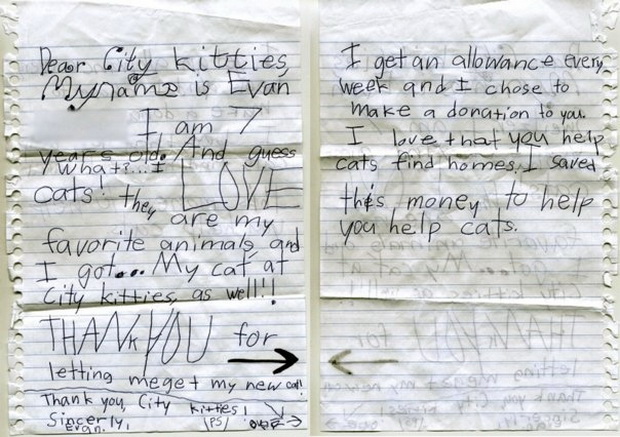 Dear City kitties,
My name is Evan
I am 7
years old. And guess
what.... I LOVE
cats! they are my
favorite animals, and
I got... My cat at
City kitties, as well!!
THANK YOU for
letting me get my new cat!
Thank you, City kitties!
Sincerly, (PS) over →
Evan.
I get an allowance every
week and I chose to
make a donation to you.
I love that you help
cats find homes. I saved
this money to help
you help cats.